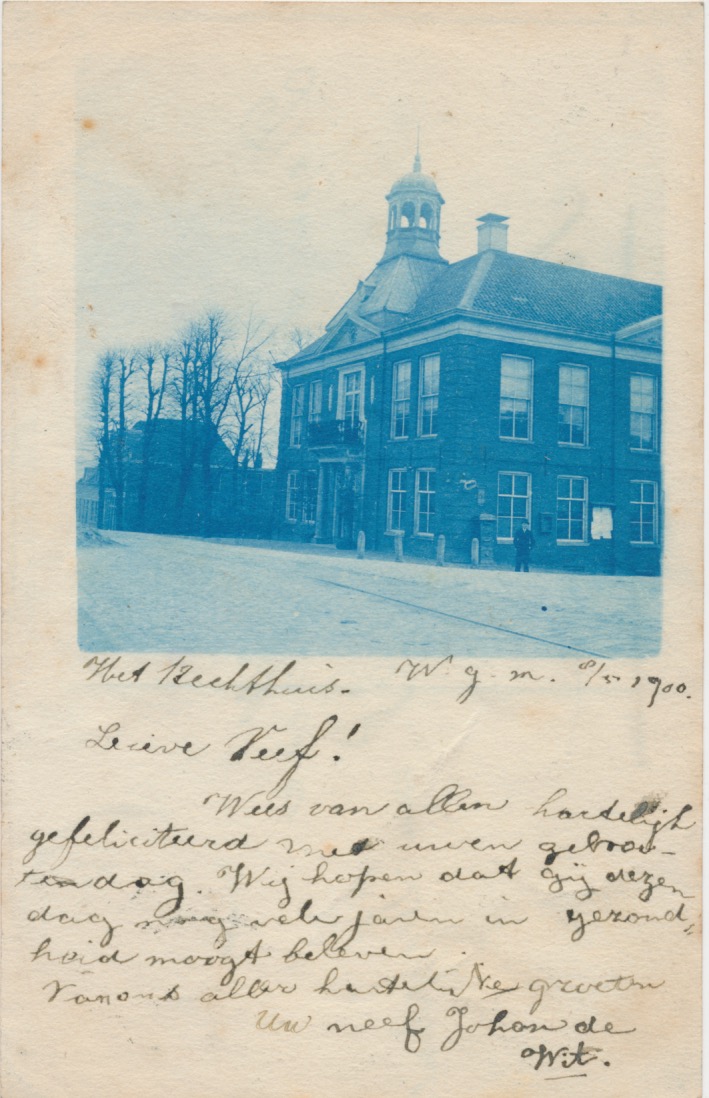 Het Rechthuis. W. g. m. 8/5 1900.
Lieve Neef!
Wees van allen hartelijk
gefeliciteerd met uwen geboor-
tendag. Wij hopen dat gij dezen
dag nog vele jaren in gezond-
heid moogt beleven.
Van ons aller hartelijke groeten
Uw neef Johan de
Wit.